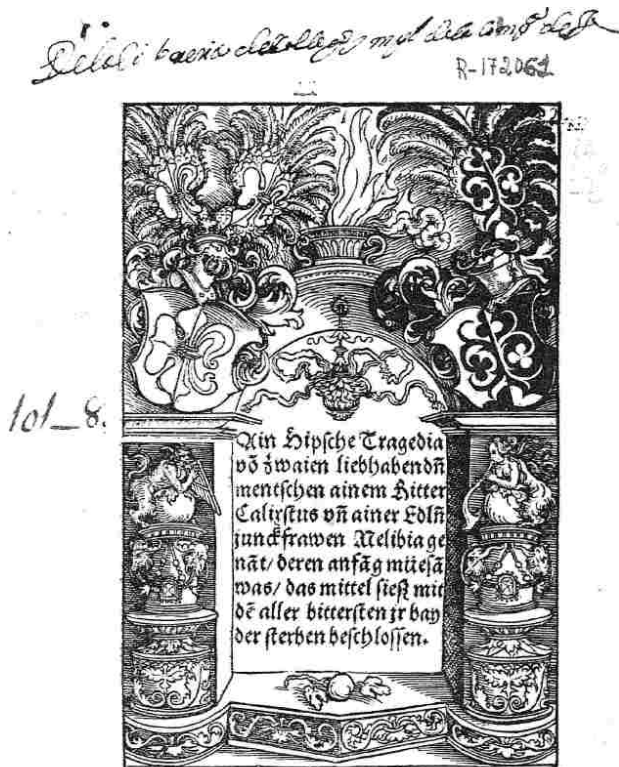 de la
R-172061
101_8.
Ain Hipsche Tragedia
vō zwaien liebhabendn̄
mentschen ainem Ritter
Calixstus vn̄ ainer Edln̄
junckfrawen Melibia ge
nāt/ deren anfāg müesā
was/ das mittel sieſz mit
dē aller bittersten jr bay
der sterben beschlossen.